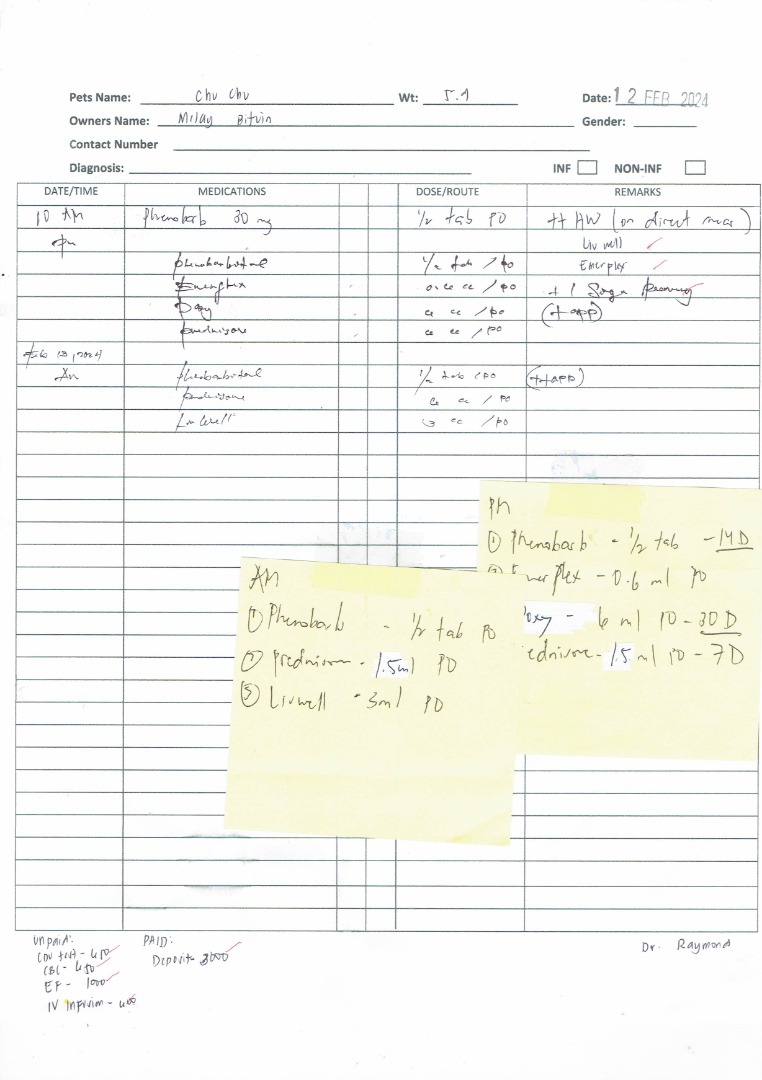 Pets Name: Chu Chu Wt: 5.9 Date: 12 FEB 2024
Owners Name: Milay Bitvin Gender:
Contact Number
Diagnosis: INF NON-INF
DATE/TIME MEDICATIONS DOSE/ROUTE REMARKS
10 AM Phenobarb 30 mg 1/2 tab PO ++ AW (on direct smear)
pm Liv well
phenobarbital 1/2 tab /po Enerplex
Enerplex cc /po + 1
Doxy cc /po (+app)
prednisone cc /po
Feb 13, 2024
Am phenobarbital 1/2 tab /po (++app)
prednisone cc /po
Livwell 3 cc /po
PM
① Phenobarb - 1/2 tab - 14 D
Enerplex - 0.6 ml PO
oxy - 6 ml PO - 30 D
ednisone - 1.5 ml PO - 7 D
AM
① Phenobarb - 1/2 tab PO
② prednison - 1.5ml PO
③ Livwell - 3ml PO
Unpaid:
CDV test - 650
CBC - 650
EF - 1000
IV Infusion - 600
PAID:
Deposit 3000
Dr. Raymond